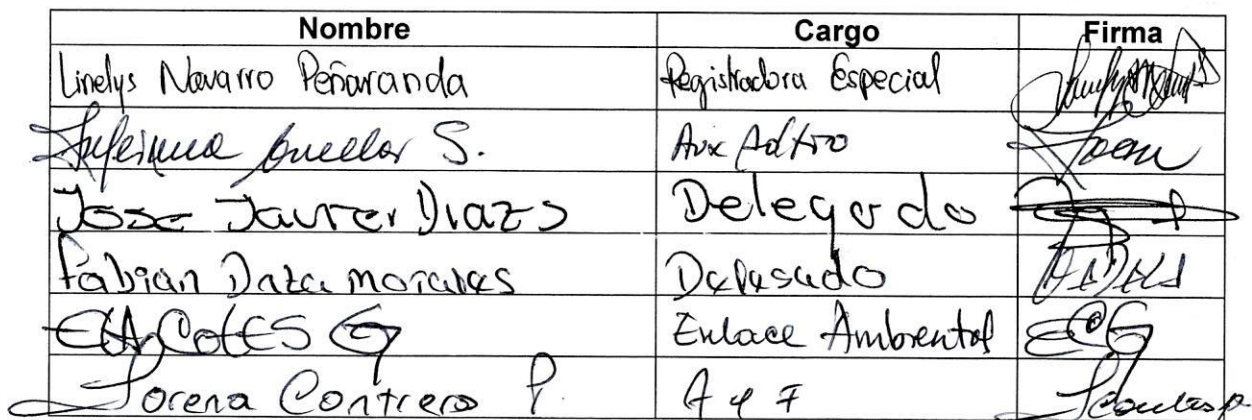 Nombre Cargo Firma
Linelys Navarro Peñaranda Registradora Especial
Cuellar S. Aux Adtvo
Jose Javier Diaz S Delegado
Fabian Daza Morales Delegado
COTES G Enlace Ambiental ECG
Lorena Contrero P. A y F